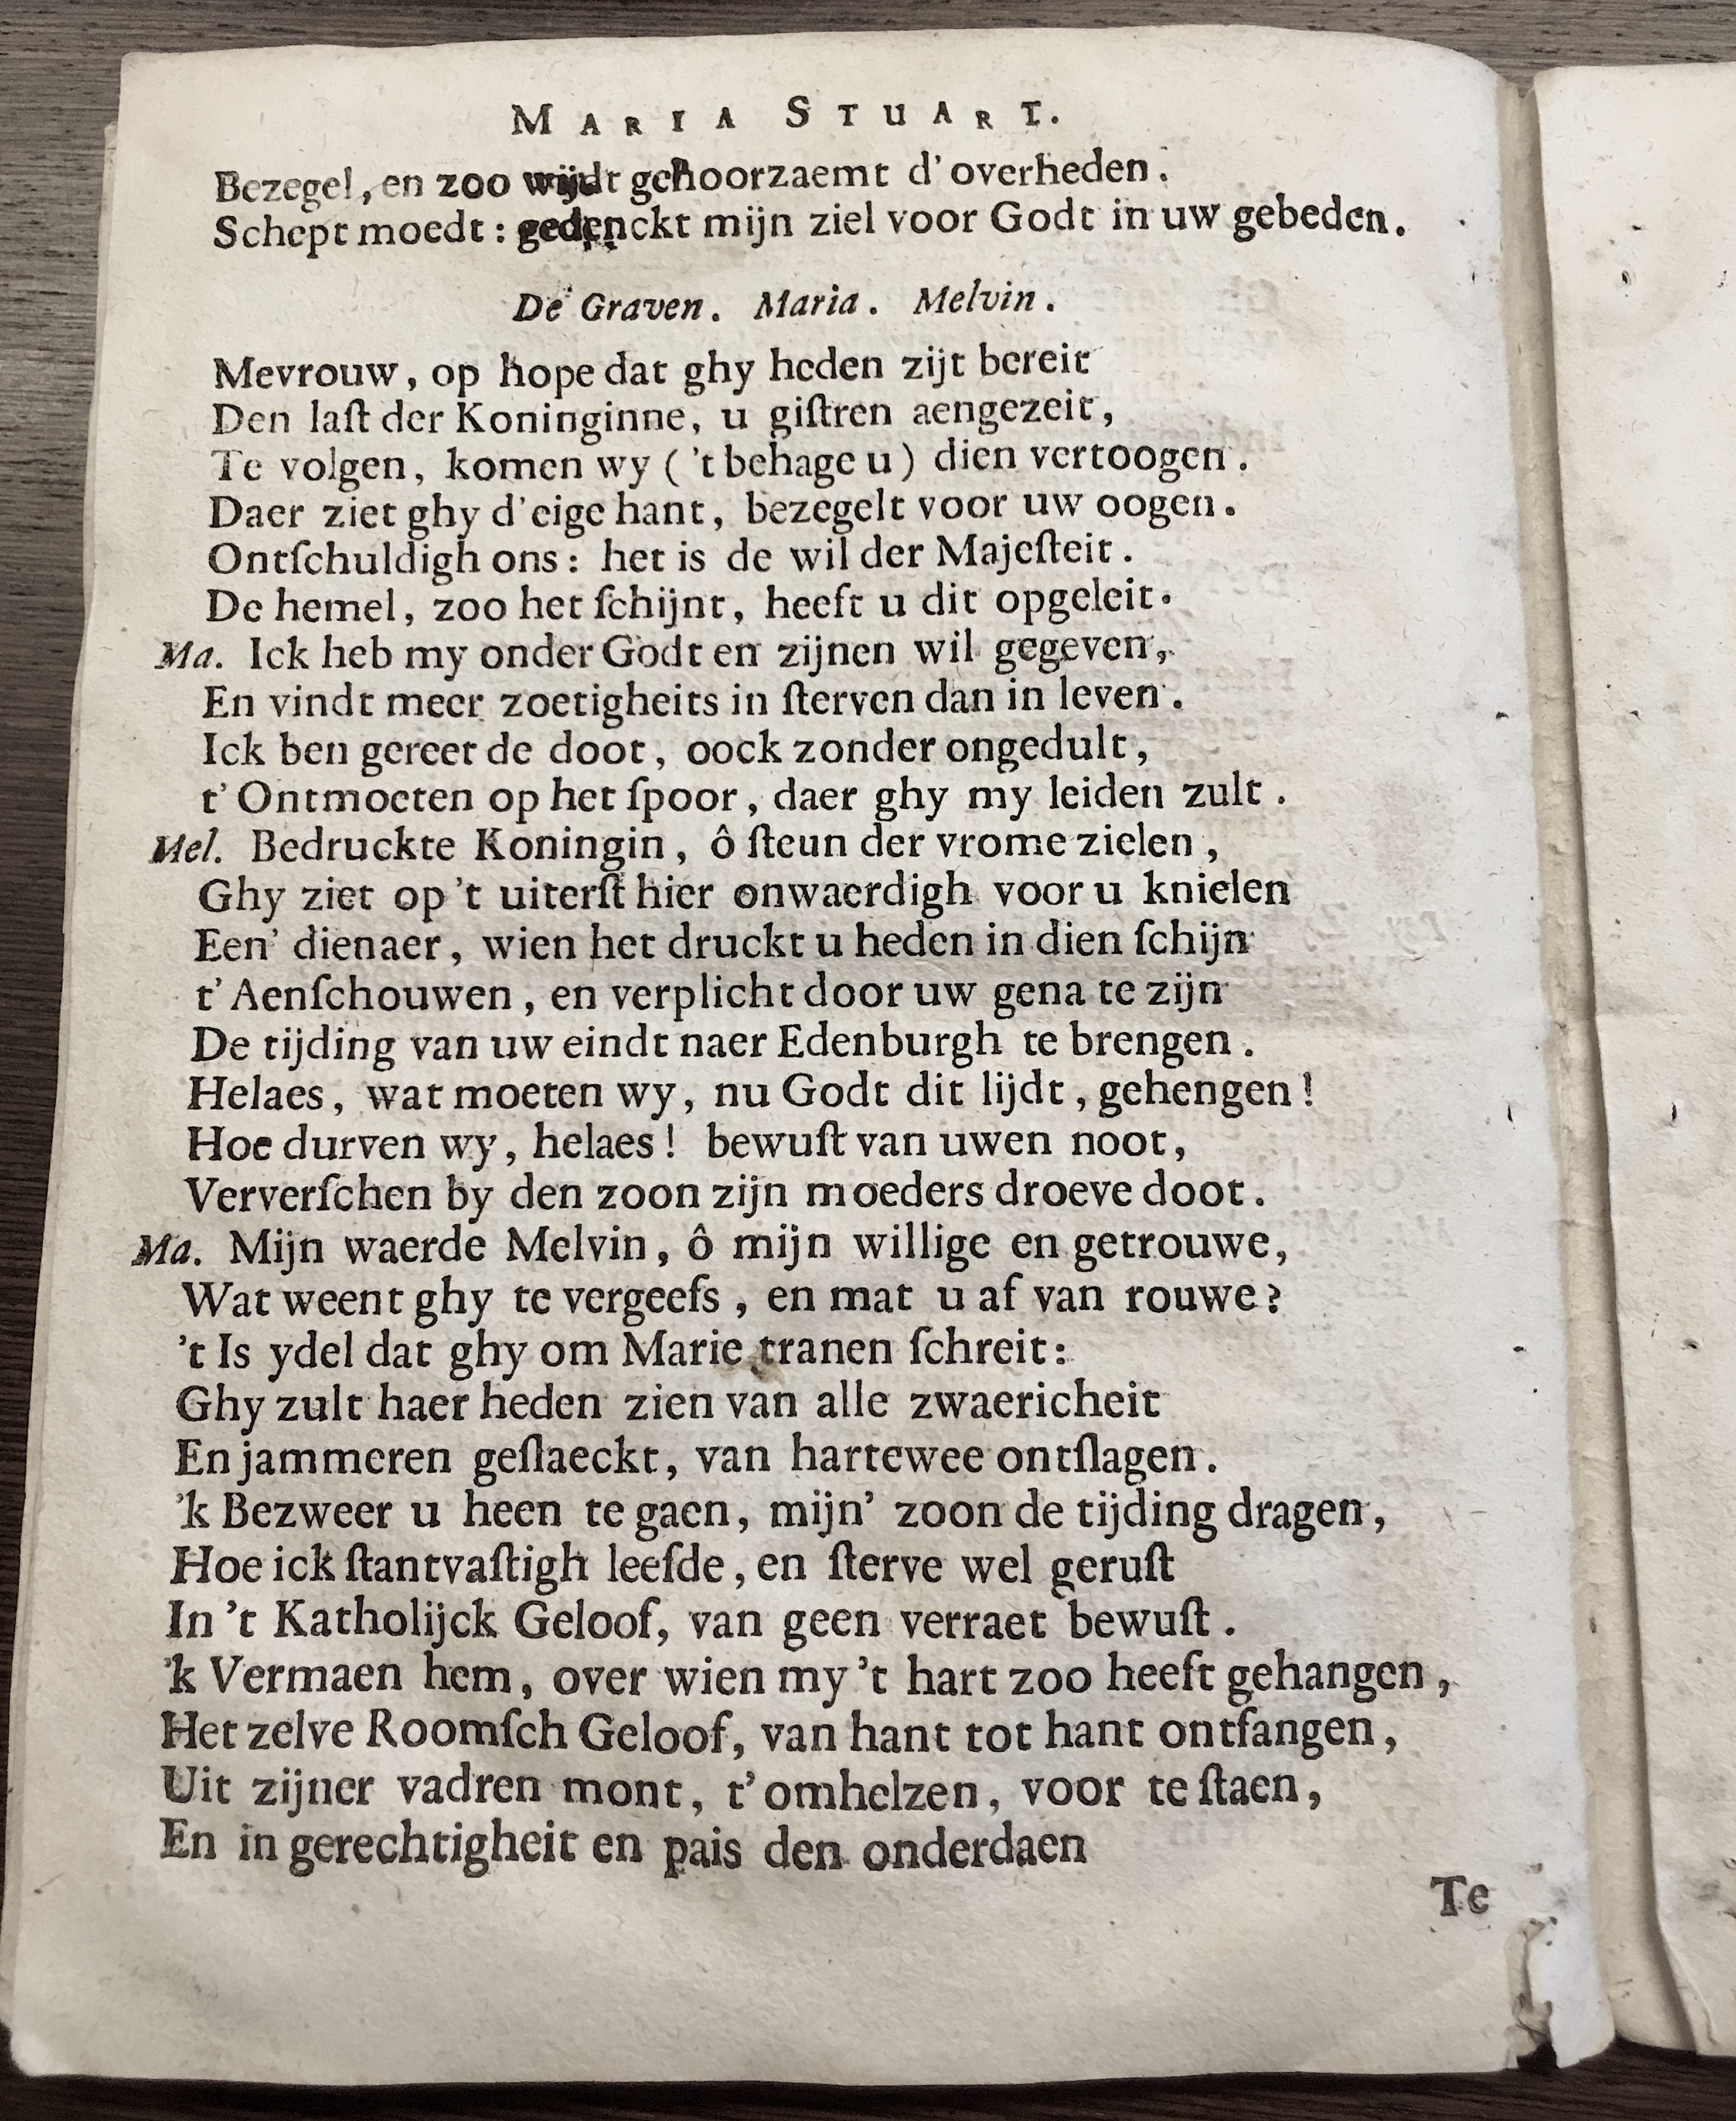 MARIA STUART.
Bezegel, en zoo wijdt gehoorzaemt d'overheden.
Schept moedt: gedenckt mijn ziel voor Godt in uw gebeden.
De Graven. Maria. Melvin.
Mevrouw, op hope dat ghy heden zijt bereit
Den laſt der Koninginne, u giſtren aengezeit,
Te volgen, komen wy ('t behage u) dien vertoogen.
Daer ziet ghy d'eige hant, bezegelt voor uw oogen.
Ontſchuldigh ons: het is de wil der Majeſteit.
De hemel, zoo het ſchijnt, heeft u dit opgeleit.
Ma. Ick heb my onder Godt en zijnen wil gegeven,
En vindt meer zoetigheits in ſterven dan in leven.
Ick ben gereet de doot, oock zonder ongedult,
t'Ontmoeten op het ſpoor, daer ghy my leiden zult.
Mel. Bedruckte Koningin, ô ſteun der vrome zielen,
Ghy ziet op 't uiterſt hier onwaerdigh voor u knielen
Een' dienaer, wien het druckt u heden in dien ſchijn
t'Aenſchouwen, en verplicht door uw gena te zijn
De tijding van uw eindt naer Edenburgh te brengen.
Helaes, wat moeten wy, nu Godt dit lijdt, gehengen!
Hoe durven wy, helaes! bewuſt van uwen noot,
Ververſchen by den zoon zijn moeders droeve doot.
Ma. Mijn waerde Melvin, ô mijn willige en getrouwe,
Wat weent ghy te vergeefs, en mat u af van rouwe?
't Is ydel dat ghy om Marie tranen ſchreit:
Ghy zult haer heden zien van alle zwaericheit
En jammeren geſlaeckt, van hartewee ontſlagen.
'k Bezweer u heen te gaen, mijn' zoon de tijding dragen,
Hoe ick ſtantvaſtigh leefde, en ſterve wel geruſt
In 't Katholijck Geloof, van geen verraet bewuſt.
'k Vermaen hem, over wien my 't hart zoo heeft gehangen,
Het zelve Roomſch Geloof, van hant tot hant ontfangen,
Uit zijner vadren mont, t'omhelzen, voor te ſtaen,
En in gerechtigheit en pais den onderdaen
Te